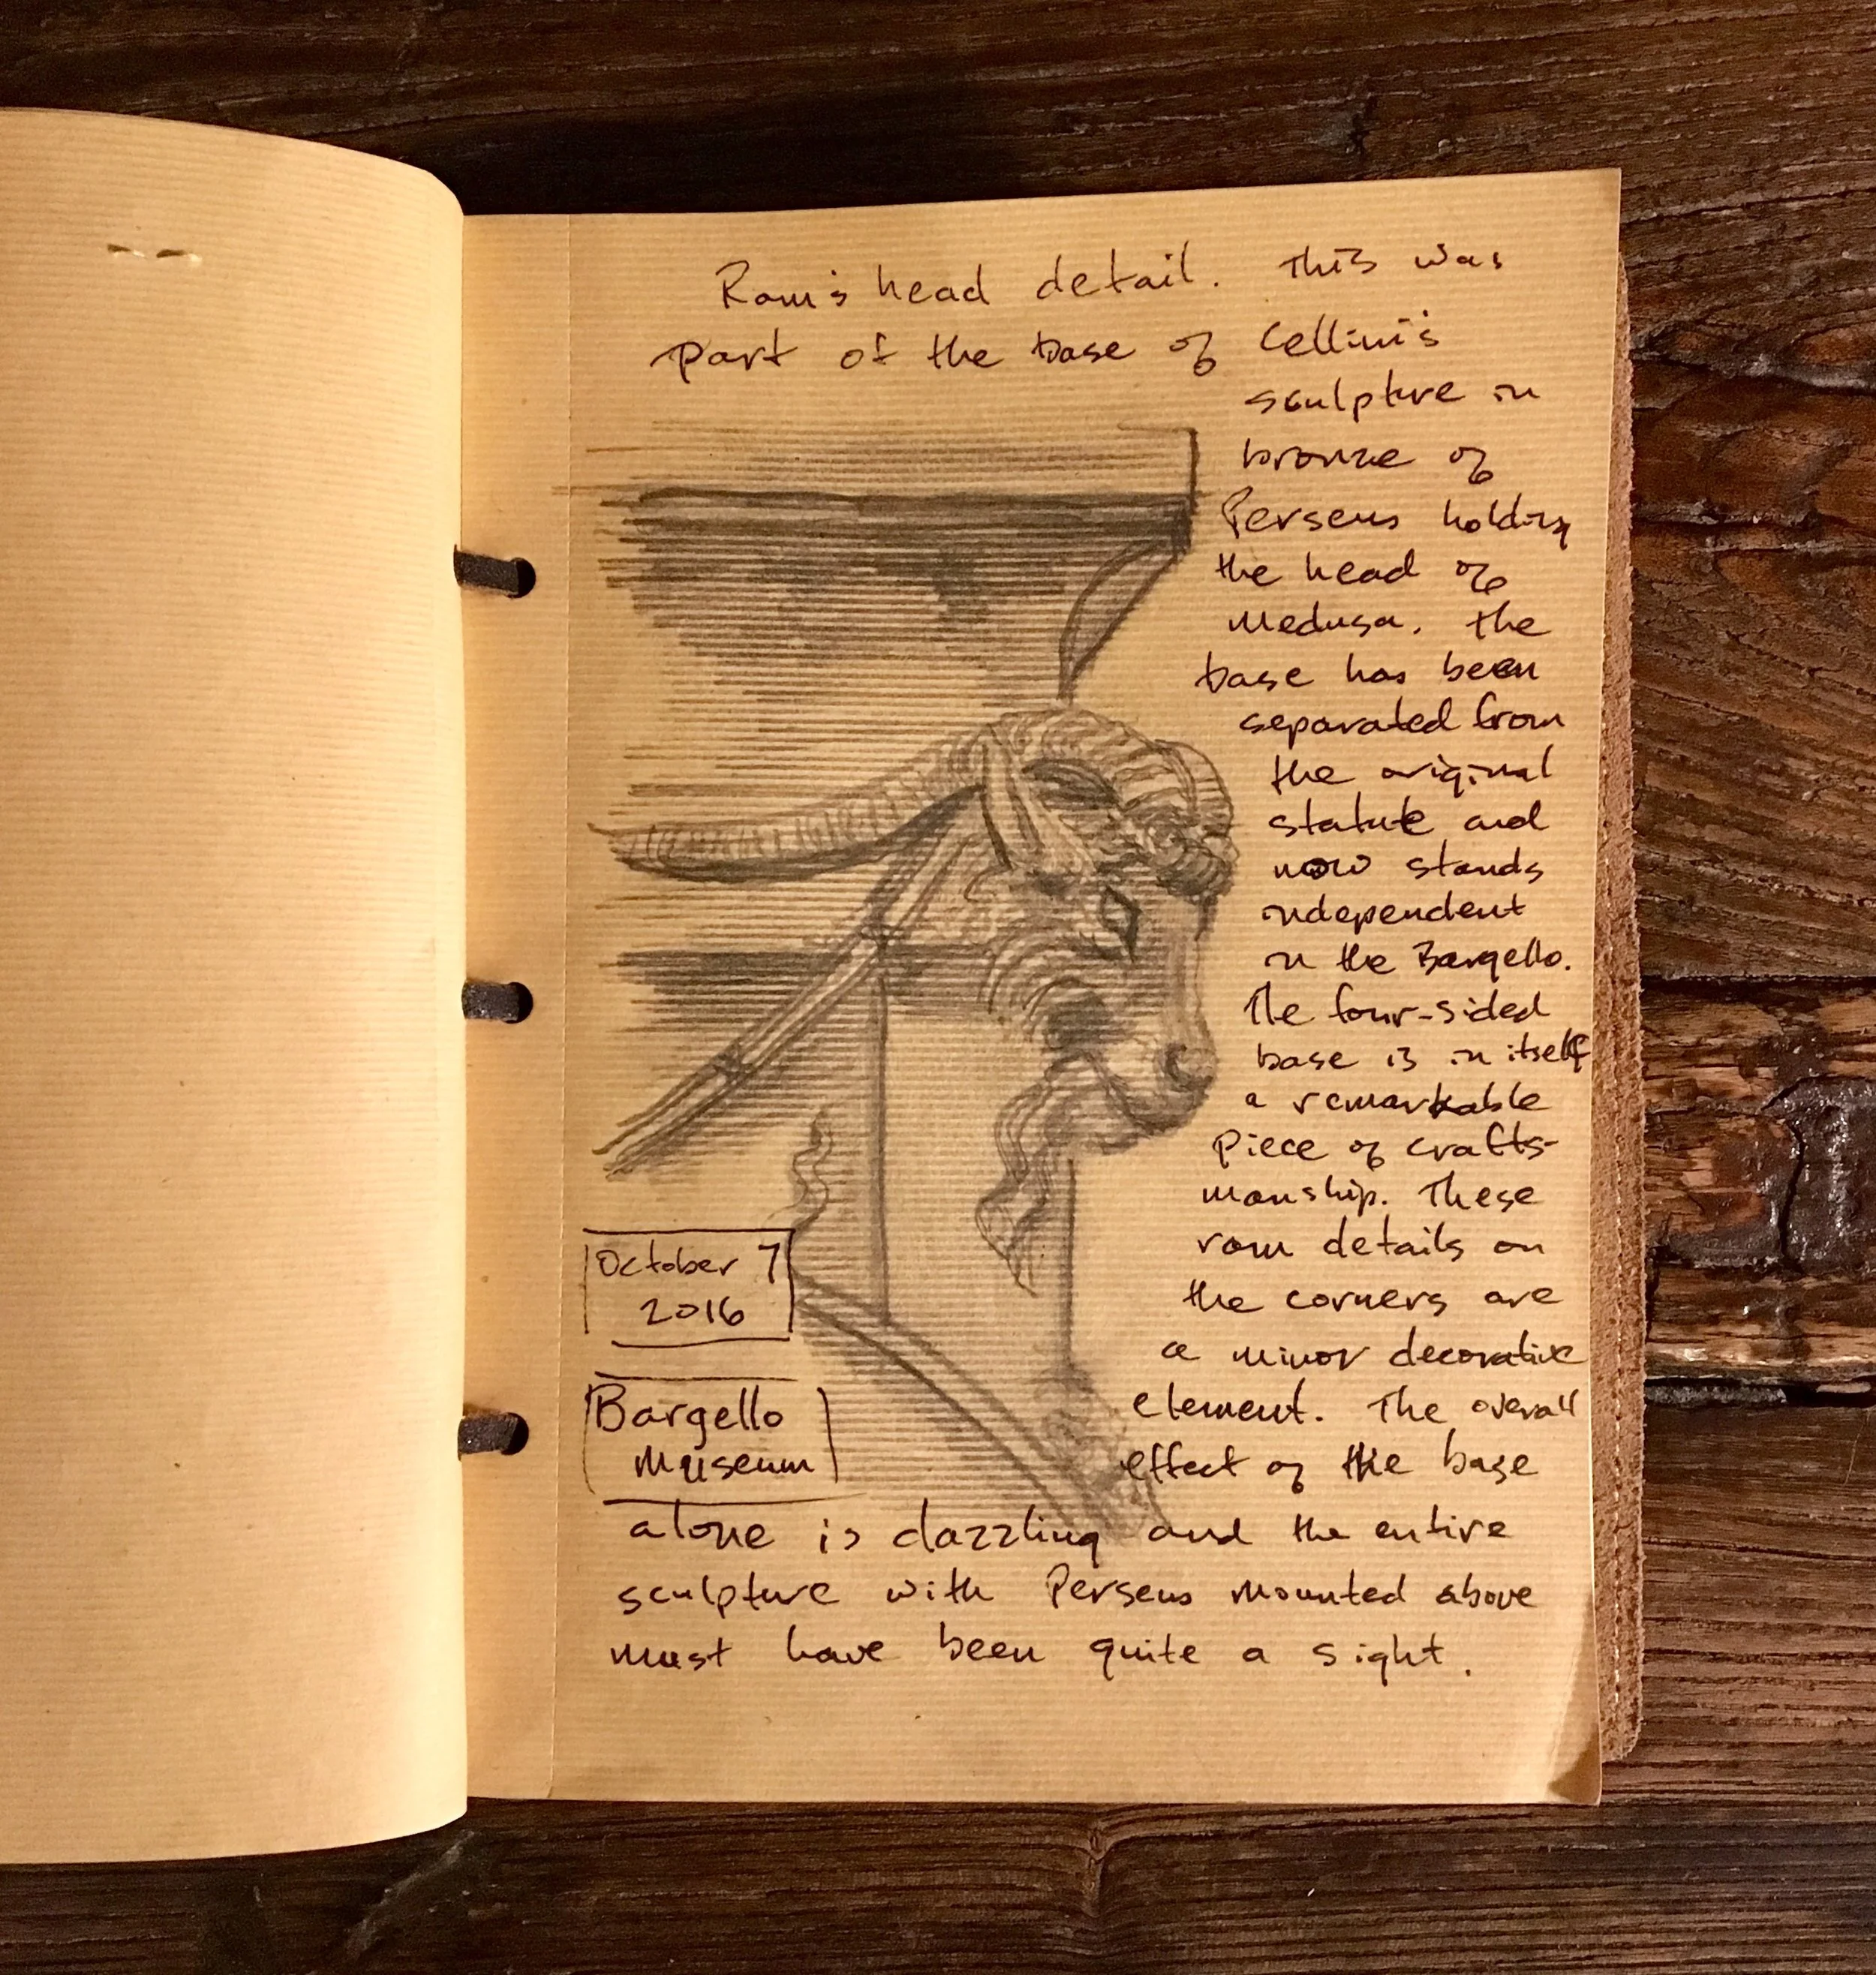 Ram's head detail. This was
part of the base of Cellini's
sculpture in
bronze of
Perseus holding
the head of
Medusa. The
base has been
separated from
the original
statute and
now stands
independent
in the Bargello.
The four-sided
base is in itself
a remarkable
piece of crafts-
manship. These
ram details on
the corners are
a minor decorative
element. The overall
effect of the base
alone is dazzling and the entire
sculpture with Perseus mounted above
must have been quite a sight.
October 7
2016
Bargello
Museum